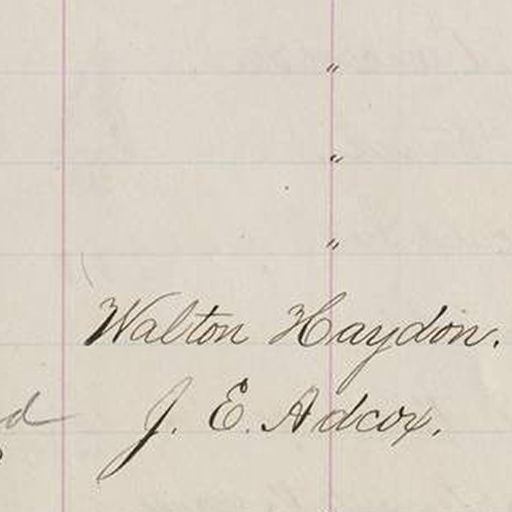 "
"
"
Walton Haydon.
J. E. Adcox.